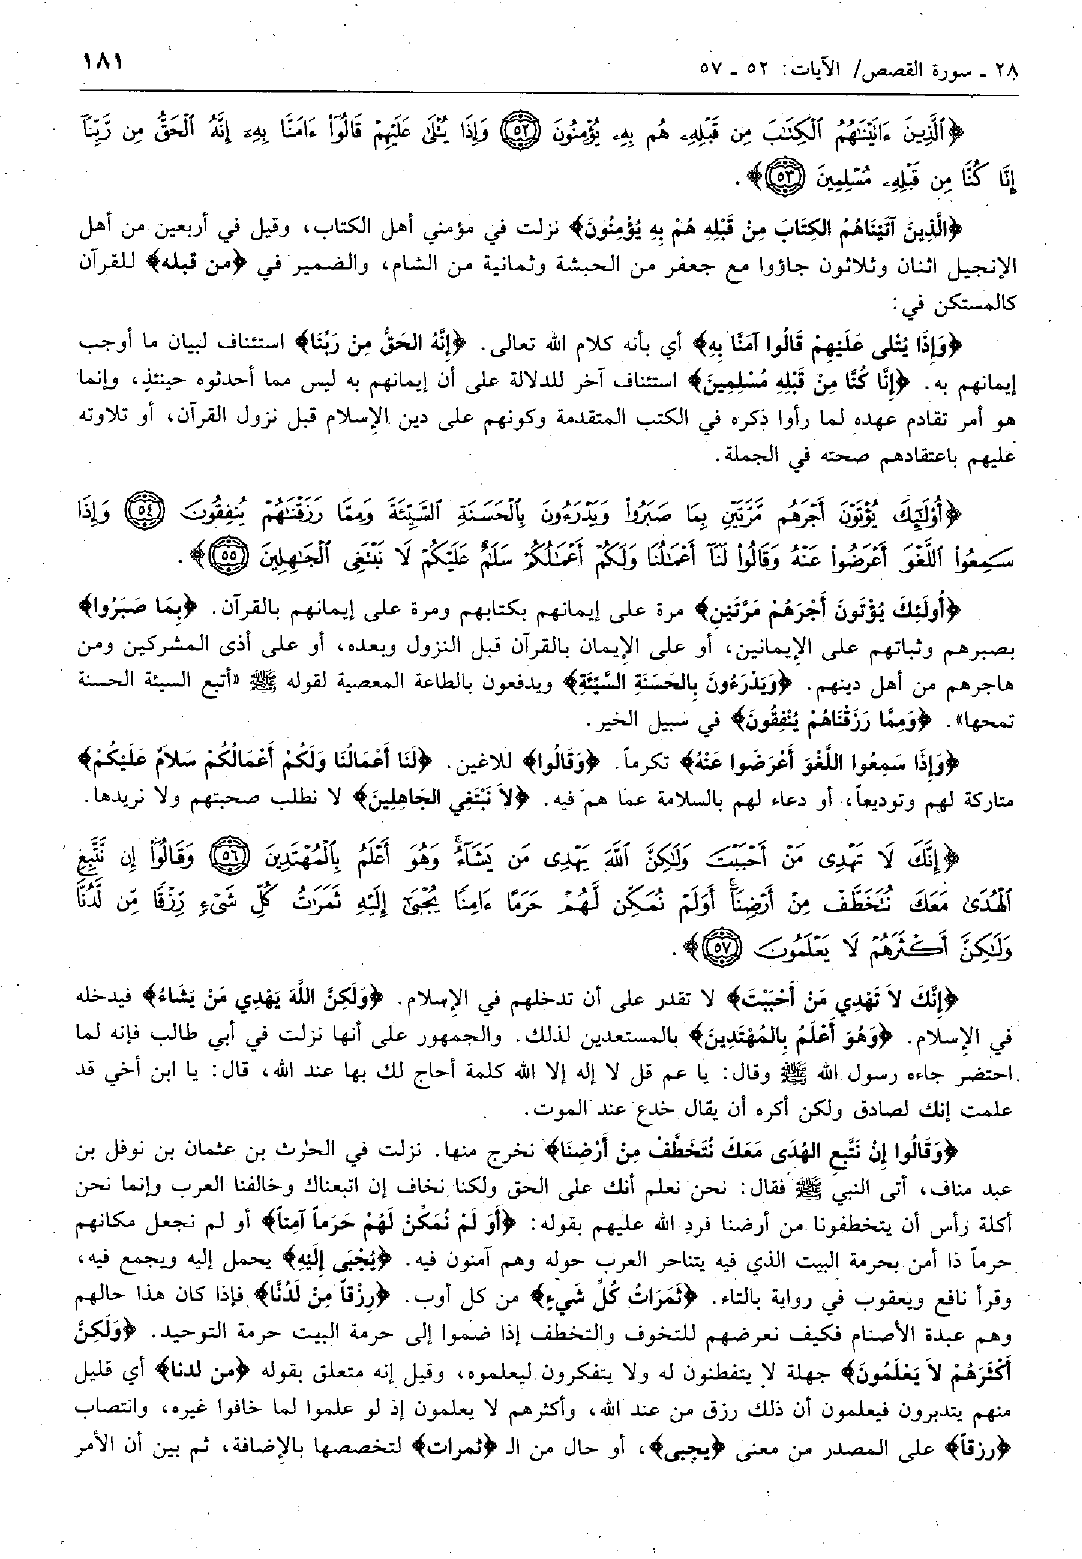 ٢٨ ـ سورة القصص/ الآيات: ٥٢ ـ ٥٧
١٨١
﴿ٱلَّذِينَ ءَاتَيْنَٰهُمُ ٱلْكِتَٰبَ مِن قَبْلِهِۦ هُم بِهِۦ يُؤْمِنُونَ ﴿٥٢﴾ وَإِذَا يُتْلَىٰ عَلَيْهِمْ قَالُوٓا۟ ءَامَنَّا بِهِۦٓ إِنَّهُ ٱلْحَقُّ مِن رَّبِّنَآ
إِنَّا كُنَّا مِن قَبْلِهِۦ مُسْلِمِينَ ﴿٥٣﴾﴾.
﴿الَّذِينَ آتَيْنَاهُمُ الكِتَابَ مِنْ قَبْلِهِ هُمْ بِهِ يُؤْمِنُونَ﴾ نزلت في مؤمني أهل الكتاب، وقيل في أربعين من أهل
الإنجيل اثنان وثلاثون جاؤوا مع جعفر من الحبشة وثمانية من الشام، والضمير في ﴿من قبله﴾ للقرآن
كالمستكن في:
﴿وَإِذَا يُتْلى عَلَيْهِمْ قَالُوا آمَنَّا بِهِ﴾ أي بأنه كلام الله تعالى. ﴿إِنَّهُ الحَقُّ مِنْ رَبِّنَا﴾ استئناف لبيان ما أوجب
إيمانهم به. ﴿إِنَّا كُنَّا مِنْ قَبْلِهِ مُسْلِمِينَ﴾ استئناف آخر للدلالة على أن إيمانهم به ليس مما أحدثوه حينئذ، وإنما
هو أمر تقادم عهده لما رأوا ذكره في الكتب المتقدمة وكونهم على دين الإسلام قبل نزول القرآن، أو تلاوته
عليهم باعتقادهم صحته في الجملة.
﴿أُو۟لَٰٓئِكَ يُؤْتَوْنَ أَجْرَهُم مَّرَّتَيْنِ بِمَا صَبَرُوا۟ وَيَدْرَءُونَ بِٱلْحَسَنَةِ ٱلسَّيِّئَةَ وَمِمَّا رَزَقْنَٰهُمْ يُنفِقُونَ ﴿٥٤﴾ وَإِذَا
سَمِعُوا۟ ٱللَّغْوَ أَعْرَضُوا۟ عَنْهُ وَقَالُوا۟ لَنَآ أَعْمَٰلُنَا وَلَكُمْ أَعْمَٰلُكُمْ سَلَٰمٌ عَلَيْكُمْ لَا نَبْتَغِى ٱلْجَٰهِلِينَ ﴿٥٥﴾﴾.
﴿أُولَئِكَ يُؤْتَونَ أَجْرَهُمْ مَرَّتَيْنِ﴾ مرة على إيمانهم بكتابهم ومرة على إيمانهم بالقرآن. ﴿بِمَا صَبَرُوا﴾
بصبرهم وثباتهم على الإيمانين، أو على الإيمان بالقرآن قبل النزول وبعده، أو على أذى المشركين ومن
هاجرهم من أهل دينهم. ﴿وَيَدْرَءُونَ بِالحَسَنَةِ السَّيِّئَةِ﴾ ويدفعون بالطاعة المعصية لقوله ﷺ «أتبع السيئة الحسنة
تمحها». ﴿وَمِمَّا رَزَقْنَاهُمْ يُنْفِقُونَ﴾ في سبيل الخير.
﴿وَإِذَا سَمِعُوا اللَّغْوَ أَعْرَضُوا عَنْهُ﴾ تكرماً. ﴿وَقَالُوا﴾ للاغين. ﴿لَنَا أَعْمَالُنَا وَلَكُمْ أَعْمَالُكُمْ سَلاَمٌ عَلَيْكُمْ﴾
متاركة لهم وتوديعاً، أو دعاء لهم بالسلامة عما هم فيه. ﴿لاَ نَبْتَغِي الجَاهِلِينَ﴾ لا نطلب صحبتهم ولا نريدها.
﴿إِنَّكَ لَا تَهْدِى مَنْ أَحْبَبْتَ وَلَٰكِنَّ ٱللَّهَ يَهْدِى مَن يَشَآءُ وَهُوَ أَعْلَمُ بِٱلْمُهْتَدِينَ ﴿٥٦﴾ وَقَالُوٓا۟ إِن نَّتَّبِعِ
ٱلْهُدَىٰ مَعَكَ نُتَخَطَّفْ مِنْ أَرْضِنَآ أَوَلَمْ نُمَكِّن لَّهُمْ حَرَمًا ءَامِنًا يُجْبَىٰٓ إِلَيْهِ ثَمَرَٰتُ كُلِّ شَىْءٍ رِّزْقًا مِّن لَّدُنَّا
وَلَٰكِنَّ أَكْثَرَهُمْ لَا يَعْلَمُونَ ﴿٥٧﴾﴾.
﴿إِنَّكَ لاَ تَهْدِي مَنْ أَحْبَبْتَ﴾ لا تقدر على أن تدخلهم في الإسلام. ﴿وَلَكِنَّ اللَّهَ يَهْدِي مَنْ يَشَاءُ﴾ فيدخله
في الإسلام. ﴿وَهُوَ أَعْلَمُ بِالمُهْتَدِينَ﴾ بالمستعدين لذلك. والجمهور على أنها نزلت في أبي طالب فإنه لما
احتضر جاءه رسول الله ﷺ وقال: يا عم قل لا إله إلا الله كلمة أحاج لك بها عند الله، قال: يا ابن أخي قد
علمت إنك لصادق ولكن أكره أن يقال خدع عند الموت.
﴿وَقَالُوا إِنْ نَتَّبِعِ الهُدَى مَعَكَ نُتَخَطَّفْ مِنْ أَرْضِنَا﴾ نخرج منها. نزلت في الحرث بن عثمان بن نوفل بن
عبد مناف، أتى النبي ﷺ فقال: نحن نعلم أنك على الحق ولكنا نخاف إن اتبعناك وخالفنا العرب وإنما نحن
أكلة رأس أن يتخطفونا من أرضنا فرد الله عليهم بقوله: ﴿أَوَ لَمْ نُمَكِّنْ لَهُمْ حَرَماً آمِناً﴾ أو لم نجعل مكانهم
حرماً ذا أمن بحرمة البيت الذي فيه يتناحر العرب حوله وهم آمنون فيه. ﴿يُجْبَى إِلَيْهِ﴾ يحمل إليه ويجمع فيه،
وقرأ نافع ويعقوب في رواية بالتاء. ﴿ثَمَرَاتُ كُلِّ شَيءٍ﴾ من كل أوب. ﴿رِزْقاً مِنْ لَدُنَّا﴾ فإذا كان هذا حالهم
وهم عبدة الأصنام فكيف نعرضهم للتخوف والتخطف إذا ضموا إلى حرمة البيت حرمة التوحيد. ﴿وَلَكِنَّ
أَكْثَرَهُمْ لاَ يَعْلَمُونَ﴾ جهلة لا يتفطنون له ولا يتفكرون ليعلموه، وقيل إنه متعلق بقوله ﴿من لدنا﴾ أي قليل
منهم يتدبرون فيعلمون أن ذلك رزق من عند الله، وأكثرهم لا يعلمون إذ لو علموا لما خافوا غيره، وانتصاب
﴿رزقاً﴾ على المصدر من معنى ﴿يجبى﴾، أو حال من الـ ﴿ثمرات﴾ لتخصصها بالإضافة، ثم بين أن الأمر